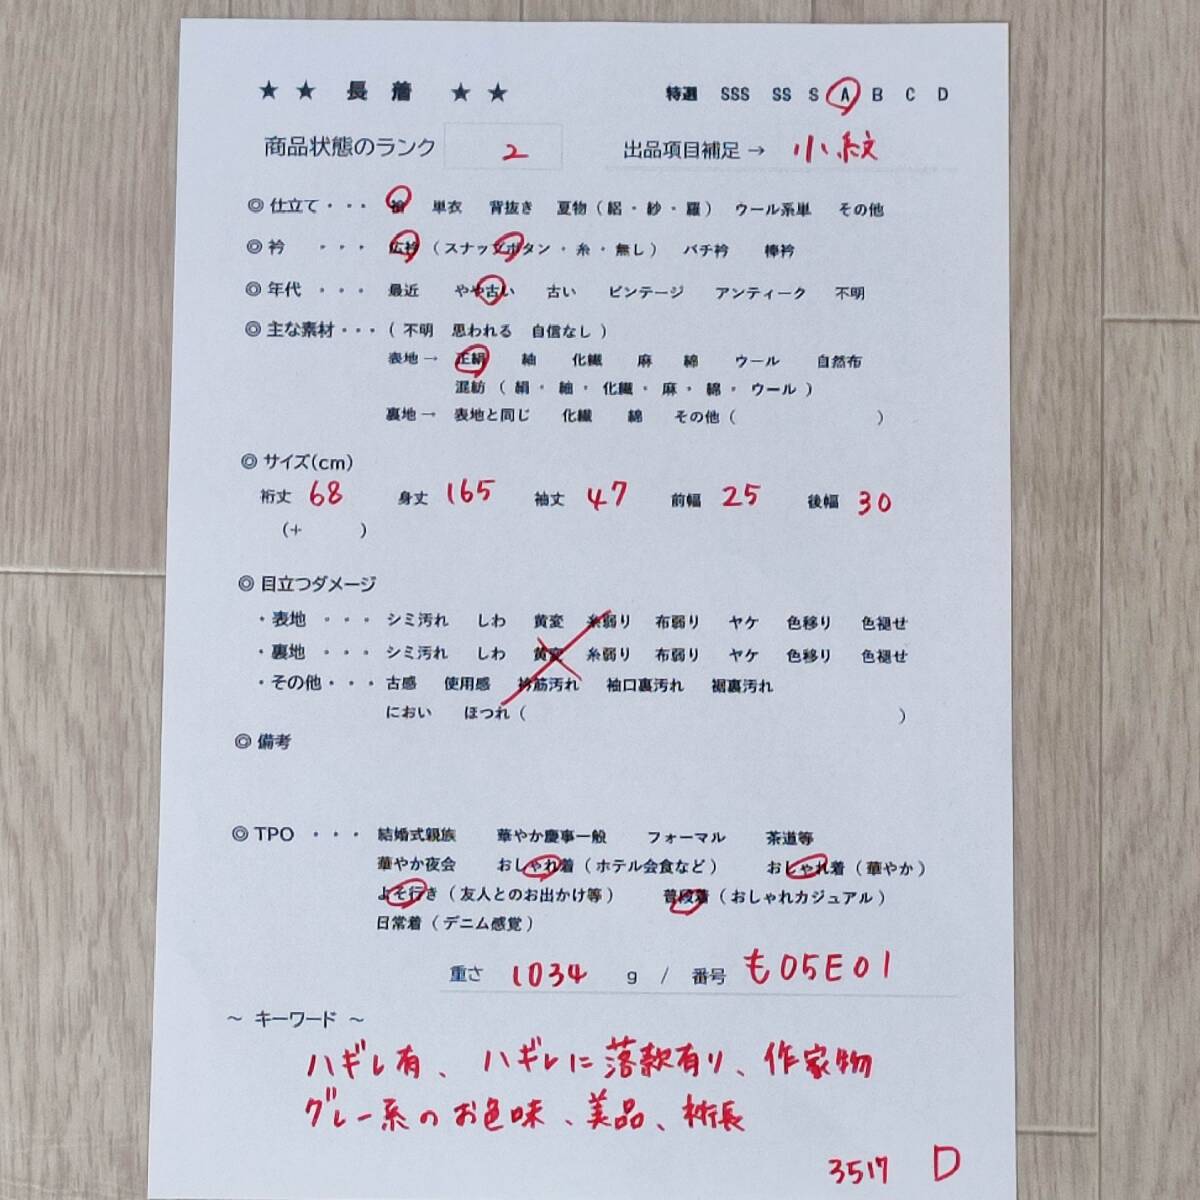 ★ ★ 長 着 ★ ★ 特選 SSS SS S A B C D
商品状態のランク 2 出品項目補足→ 小紋
◎ 仕立て・・・ 袷 単衣 背抜き 夏物(絽・紗・羅) ウール系単 その他
◎ 衿 ・・・ 広衿(スナップボタン・糸・無し) バチ衿 棒衿
◎ 年代 ・・・ 最近 やや古い 古い ビンテージ アンティーク 不明
◎ 主な素材・・・(不明 思われる 自信なし)
表地→ 正絹 紬 化繊 麻 綿 ウール 自然布
混紡(絹・紬・化繊・麻・綿・ウール)
裏地→ 表地と同じ 化繊 綿 その他( )
◎ サイズ(cm)
裄丈 68 身丈 165 袖丈 47 前幅 25 後幅 30
(+ )
◎ 目立つダメージ
・表地 ・・・ シミ汚れ しわ 黄変 糸弱り 布弱り ヤケ 色移り 色褪せ
・裏地 ・・・ シミ汚れ しわ 黄変 糸弱り 布弱り ヤケ 色移り 色褪せ
・その他・・・ 古感 使用感 衿筋汚れ 袖口裏汚れ 裾裏汚れ
におい ほつれ( )
◎ 備考
◎ TPO ・・・ 結婚式親族 華やか慶事一般 フォーマル 茶道等
華やか夜会 おしゃれ着(ホテル会食など) おしゃれ着(華やか)
よそ行き(友人とのお出かけ等) 普段着(おしゃれカジュアル)
日常着(デニム感覚)
重さ 1034 g / 番号 も05E01
～ キーワード ～
ハギレ有、ハギレに落款有り、作家物
グレー系のお色味、美品、裄長
3517 D